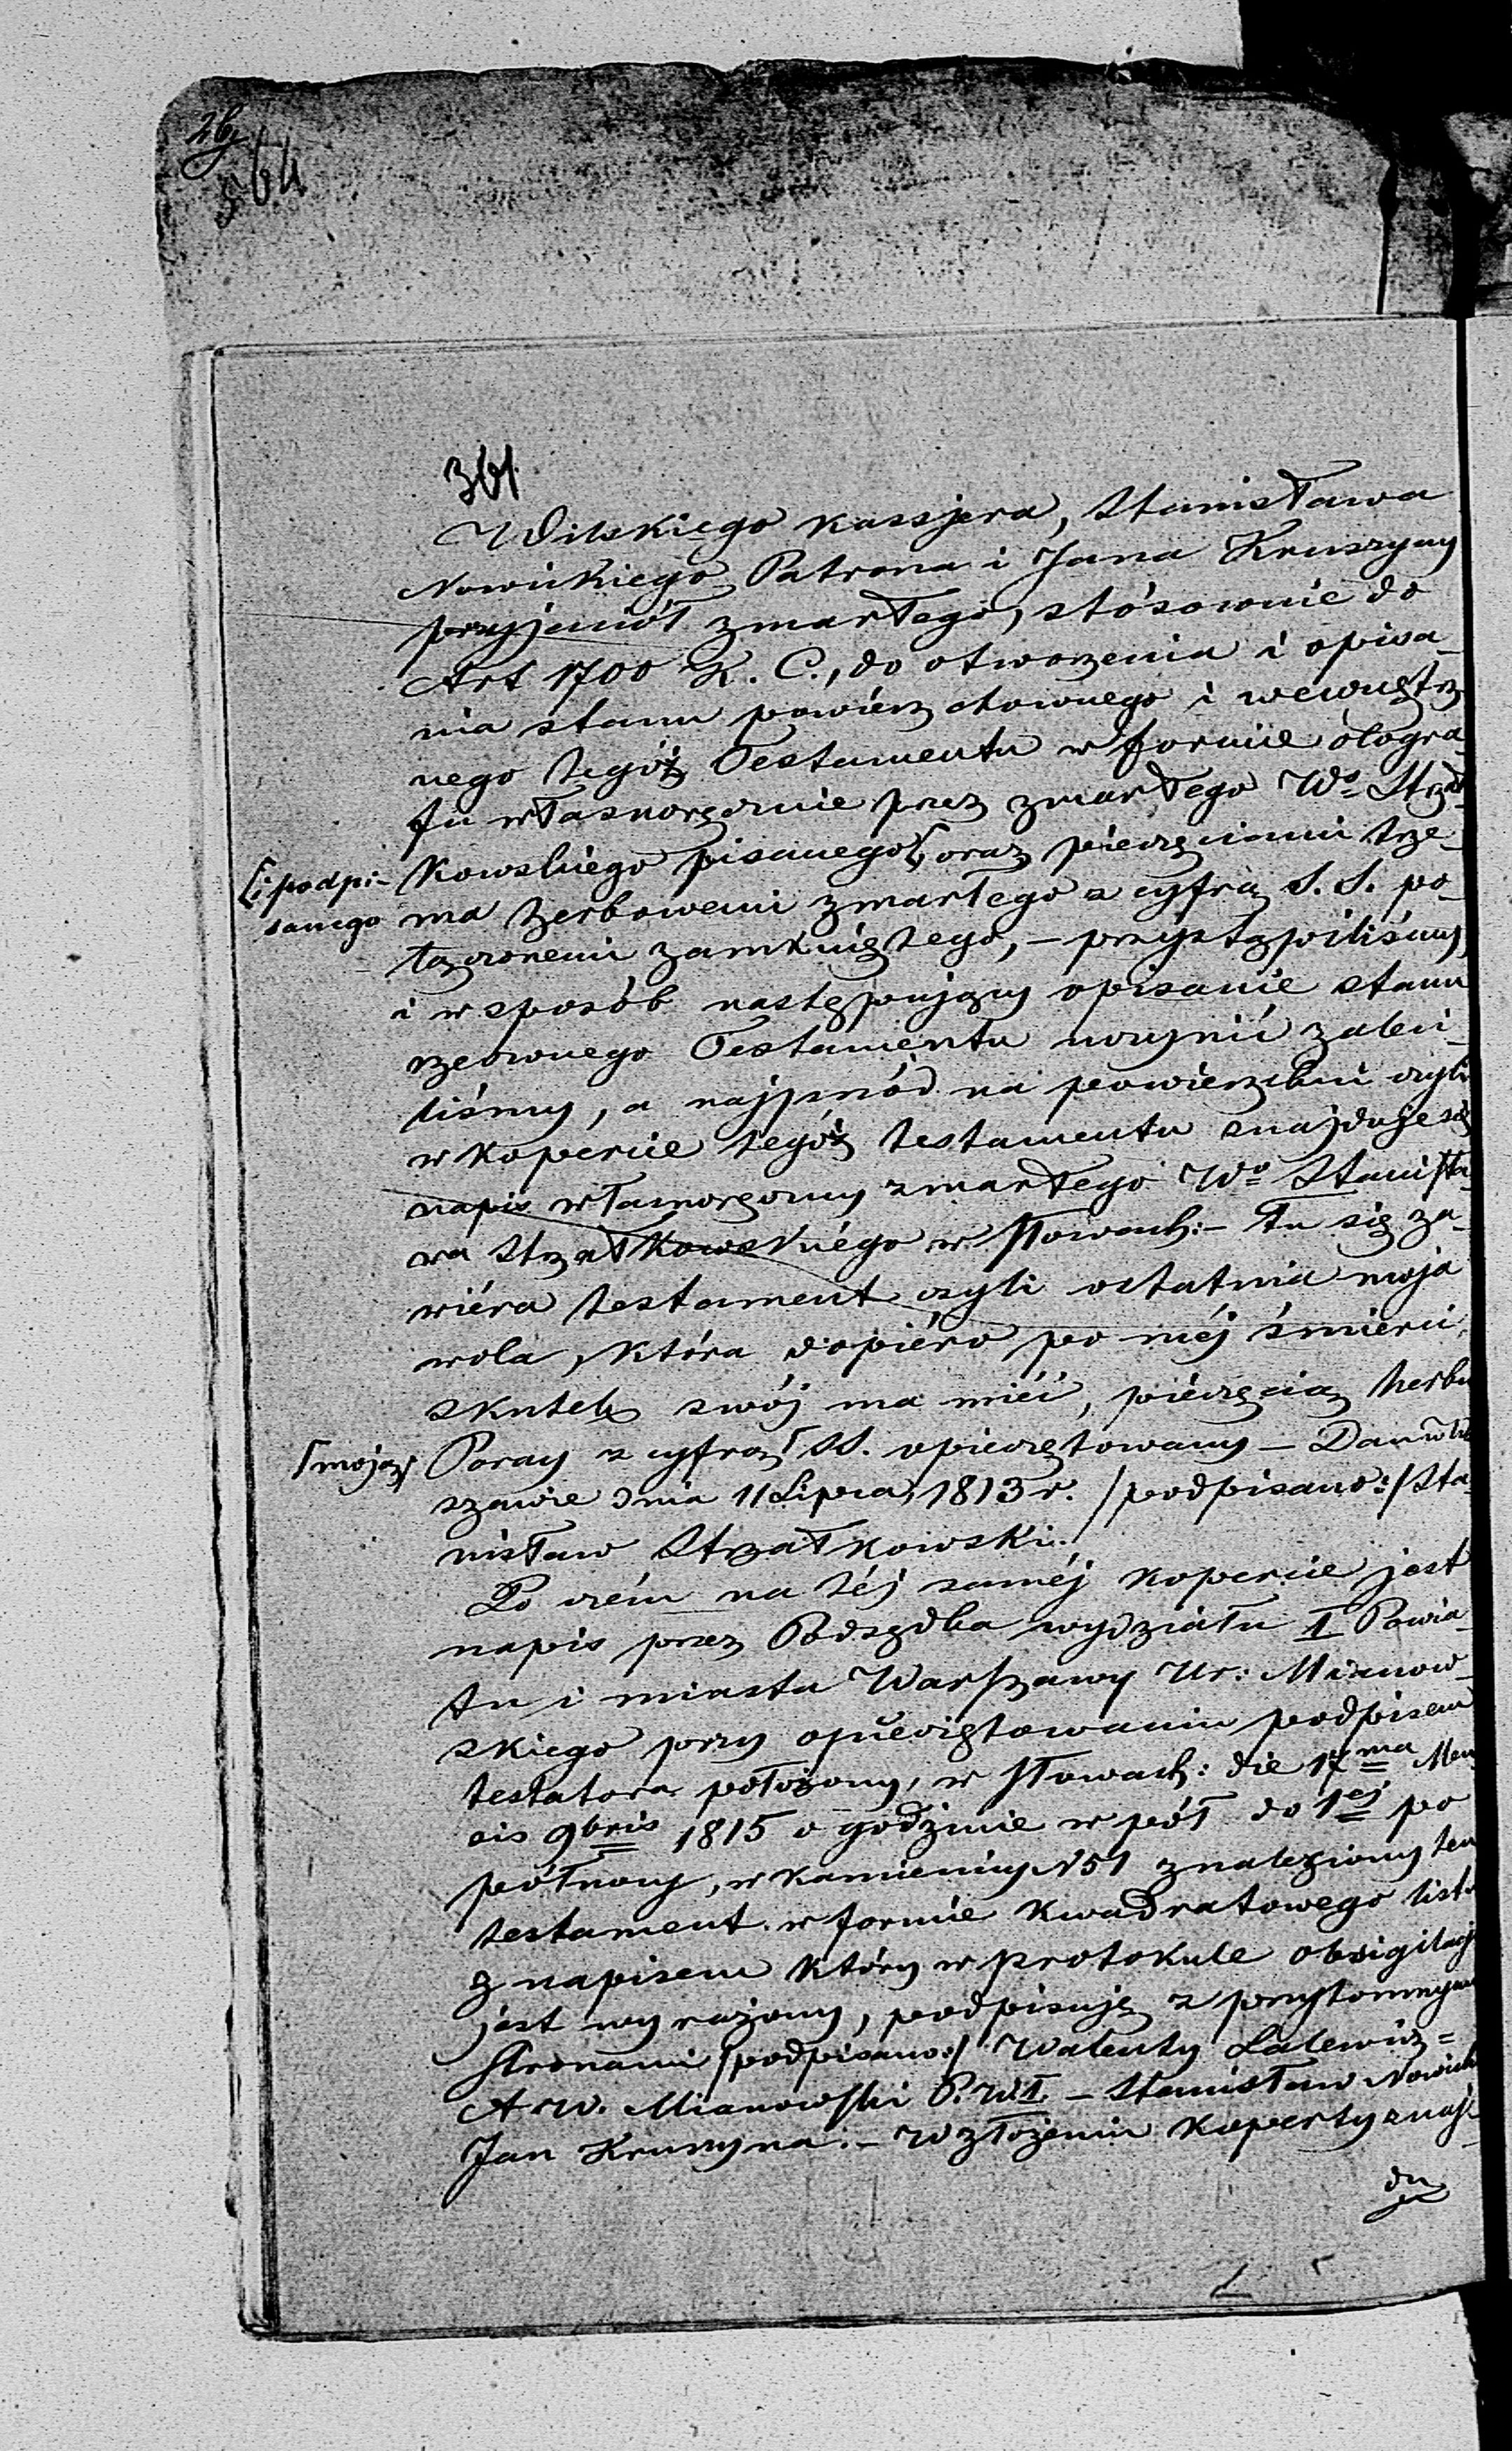 564
361.
Wilskiego kassjera, Stanisława
Nowickiego Patrona i Jana Kruszyny
przyjaciół zmarłego, stósownie do
Art 1700 K. C., do otworzenia i opisa_
nia stanu powierzchownego i wewnętrz
nego tegóż Testamentu w formie ologra_
fu własnoręcznie przez zmarłego Wo Strzał_
kowskiego pisanego, oraz pieczęciami trze_
[i podpi-
sanego
ma herbowemi zmarłego z cyfrą S. S. po_
łączonemi zamkniętego, – przystąpiliśmy,
i w sposób następujący opisanie stanu
rzeczonego Testamentu uczynić zaleci_
liśmy, a najprzód na powierzchni czyli
w kopercie tegóż testamentu znajduje się
napis własnoręczny zmarłego Wo Stanisła_
wa Strzałkowskiego w słowach: – Tu się za_
wiéra testament czyli ostatnia moja
wola, która dopiéro po méj śmierci
skutek swój ma mieć, pieczęcią herbu
Poray z cyfrą SS. opieczętowany – Dan w War
[moją
szawie dnia 11 Lipca, 1813 r. /podpisano:/ Sta_
nisław Strzałkowski.
Po czém na téj saméj kopercie jest
napis przez Podsędka wydziału I Powia_
tu i miasta Warszawy Ur: Mianow_
skiego przy opieczętowaniu podpisem
testatora położony, w słowach: die 17ma Men
sis 9bris 1815 o godzinie w pół do 1ej po
północy, w kamienicy N 51 znaleziony ten
testament w formie kwadratowego listu
z napisem który w protokule obsigilacji
jest wyrażony, podpisuję z przytomnymi
stronami /podpisano:/ Walenty Lalewicz =
A. W. Mianowski P. W. I. – Stanisław Nowicki
Jan Kruszyna. – W złożeniu koperty znaj_
du